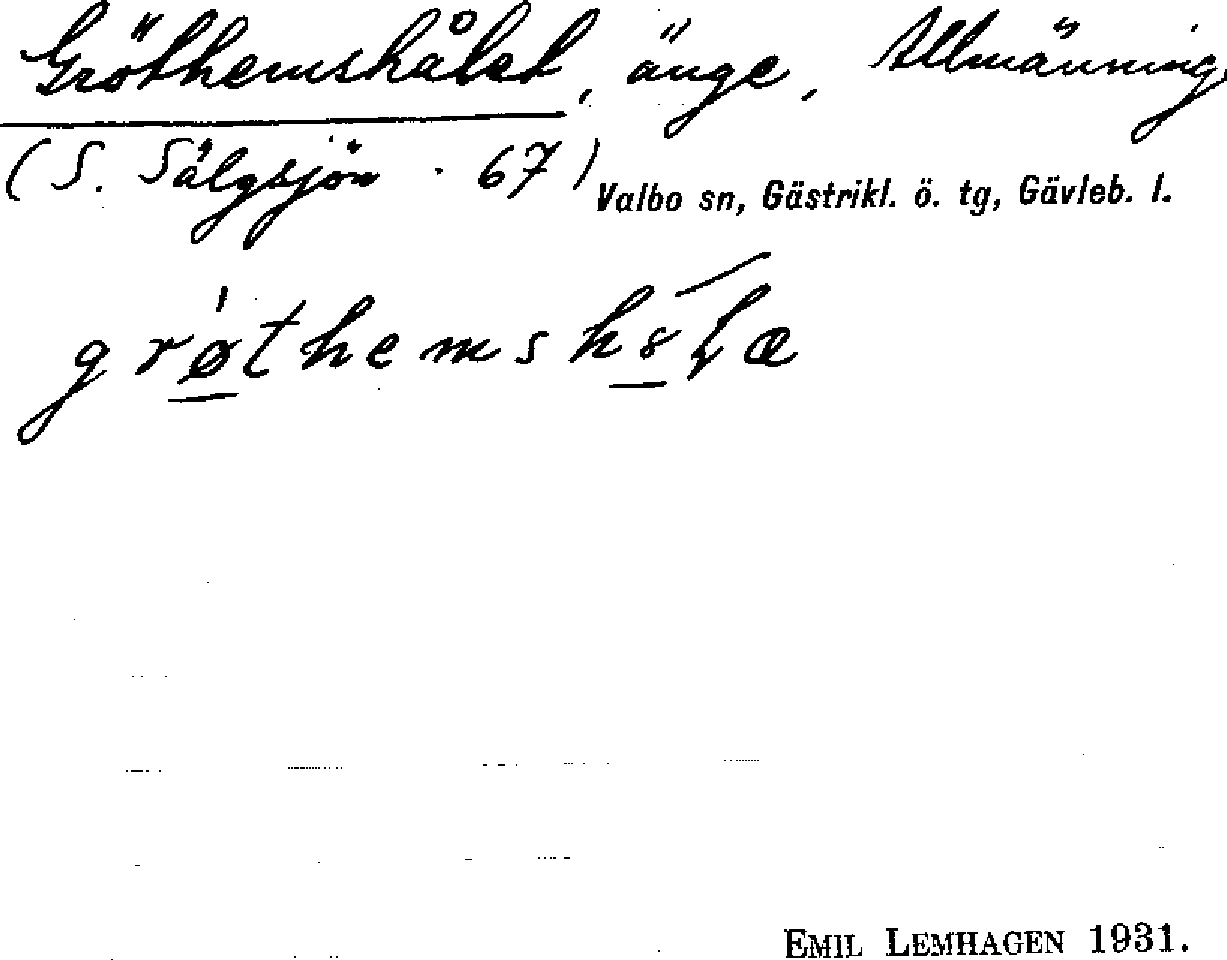 Gröthemshålet, änge, Allmänning.
(S. Sälgsjön · 67) Valbo sn, Gästrikl. ö. tg, Gävleb. l.
grø̲themshȣ̲ɫæ
EMIL LEMHAGEN 1931.